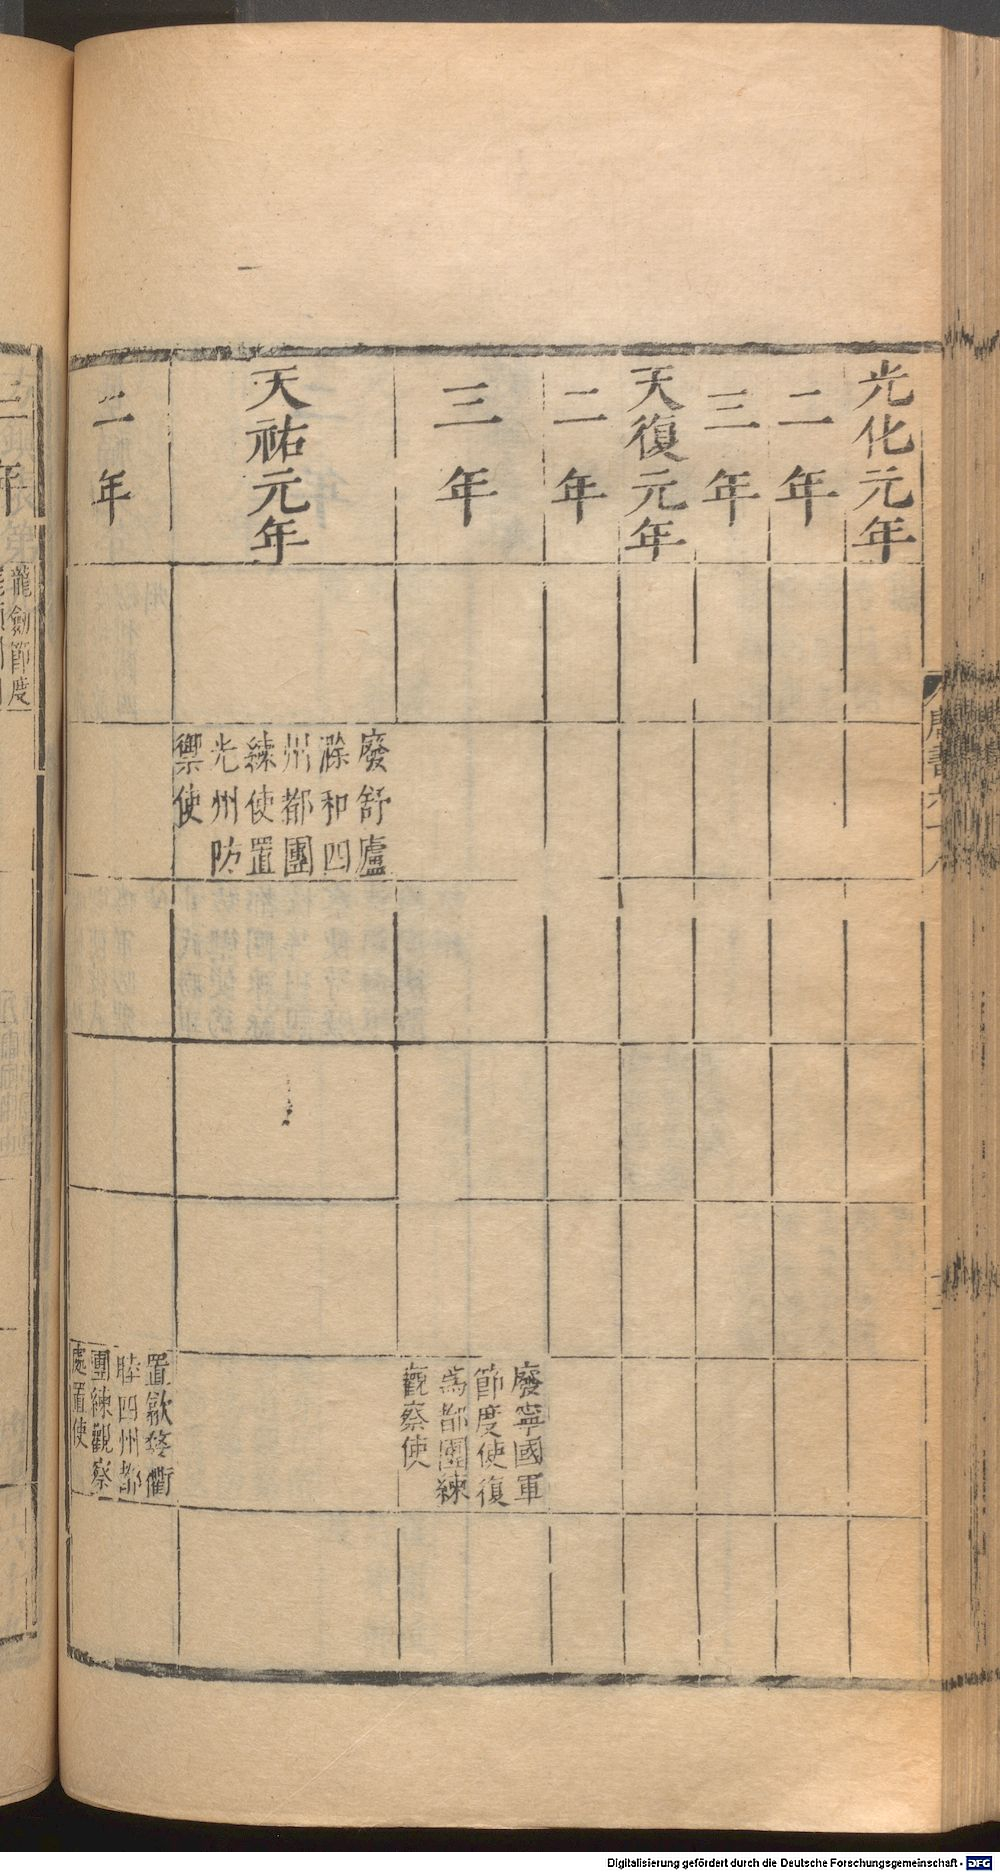 光化元年
二年
三年
天復元年
二年
三年
廢寧國軍
節度使復
為都團練
觀察使
天祐元年
廢舒廬
滁和四
州都團
練使置
光州防
禦使
二年
置歙婺衢
睦四州都
團練觀察
處置使
三年
龍劒節度
Digitalisierung gefördert durch die Deutsche Forschungsgemeinschaft - DFG